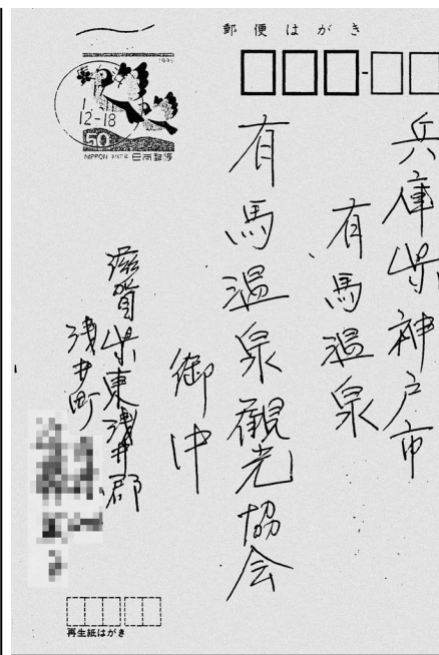 郵便はがき
1995
12-18
50
NIPPON 日本郵便
兵庫県神戸市
有馬温泉
有馬温泉観光協会
御中
滋賀県東浅井郡
浅井町
再生紙はがき